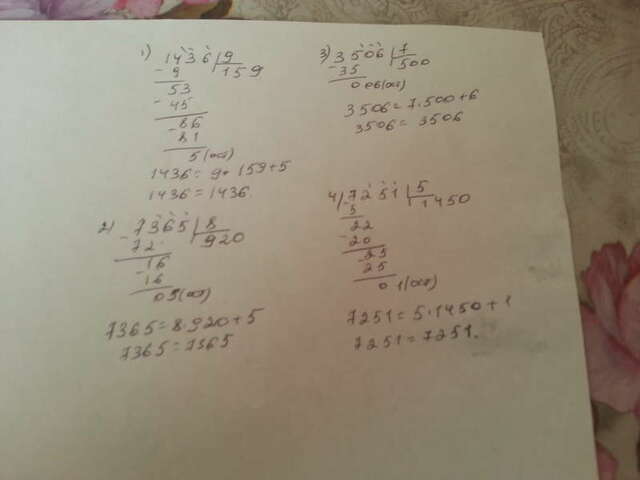 1) 1436 | 9
- 9 | 159
53
- 45
- 86
81
5 (ост)
1436 = 9 · 159 + 5
1436 = 1436.
2) - 7365 | 8
72 | 920
- 16
16
05 (ост)
7365 = 8 · 920 + 5
7365 = 7365
3) 3506 | 7
- 35 | 500
0 06 (ост)
3506 = 7 · 500 + 6
3506 = 3506
4) - 7251 | 5
5 | 1450
22
- 20
- 25
25
0 1 (ост)
7251 = 5 · 1450 + 1
7251 = 7251.